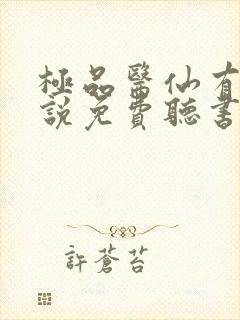 極品醫仙有
說免費聽書
許蒼苔